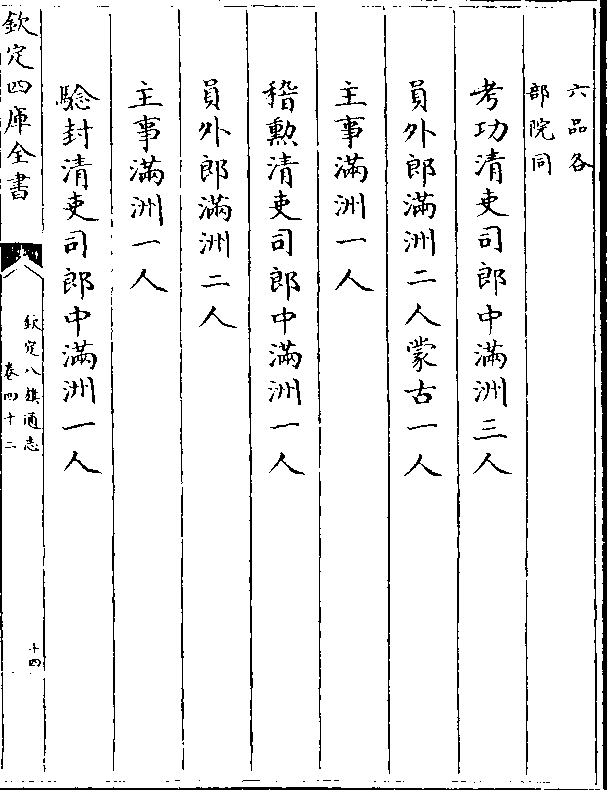 六品各
部院同
考功清吏司郎中滿洲三人
員外郎滿洲二人蒙古一人
主事滿洲一人
稽勲清吏司郎中滿洲一人
員外郎滿洲二人
主事滿洲一人
驗封清吏司郎中滿洲一人
欽定四庫全書
欽定八旗通志
卷四十二
十四